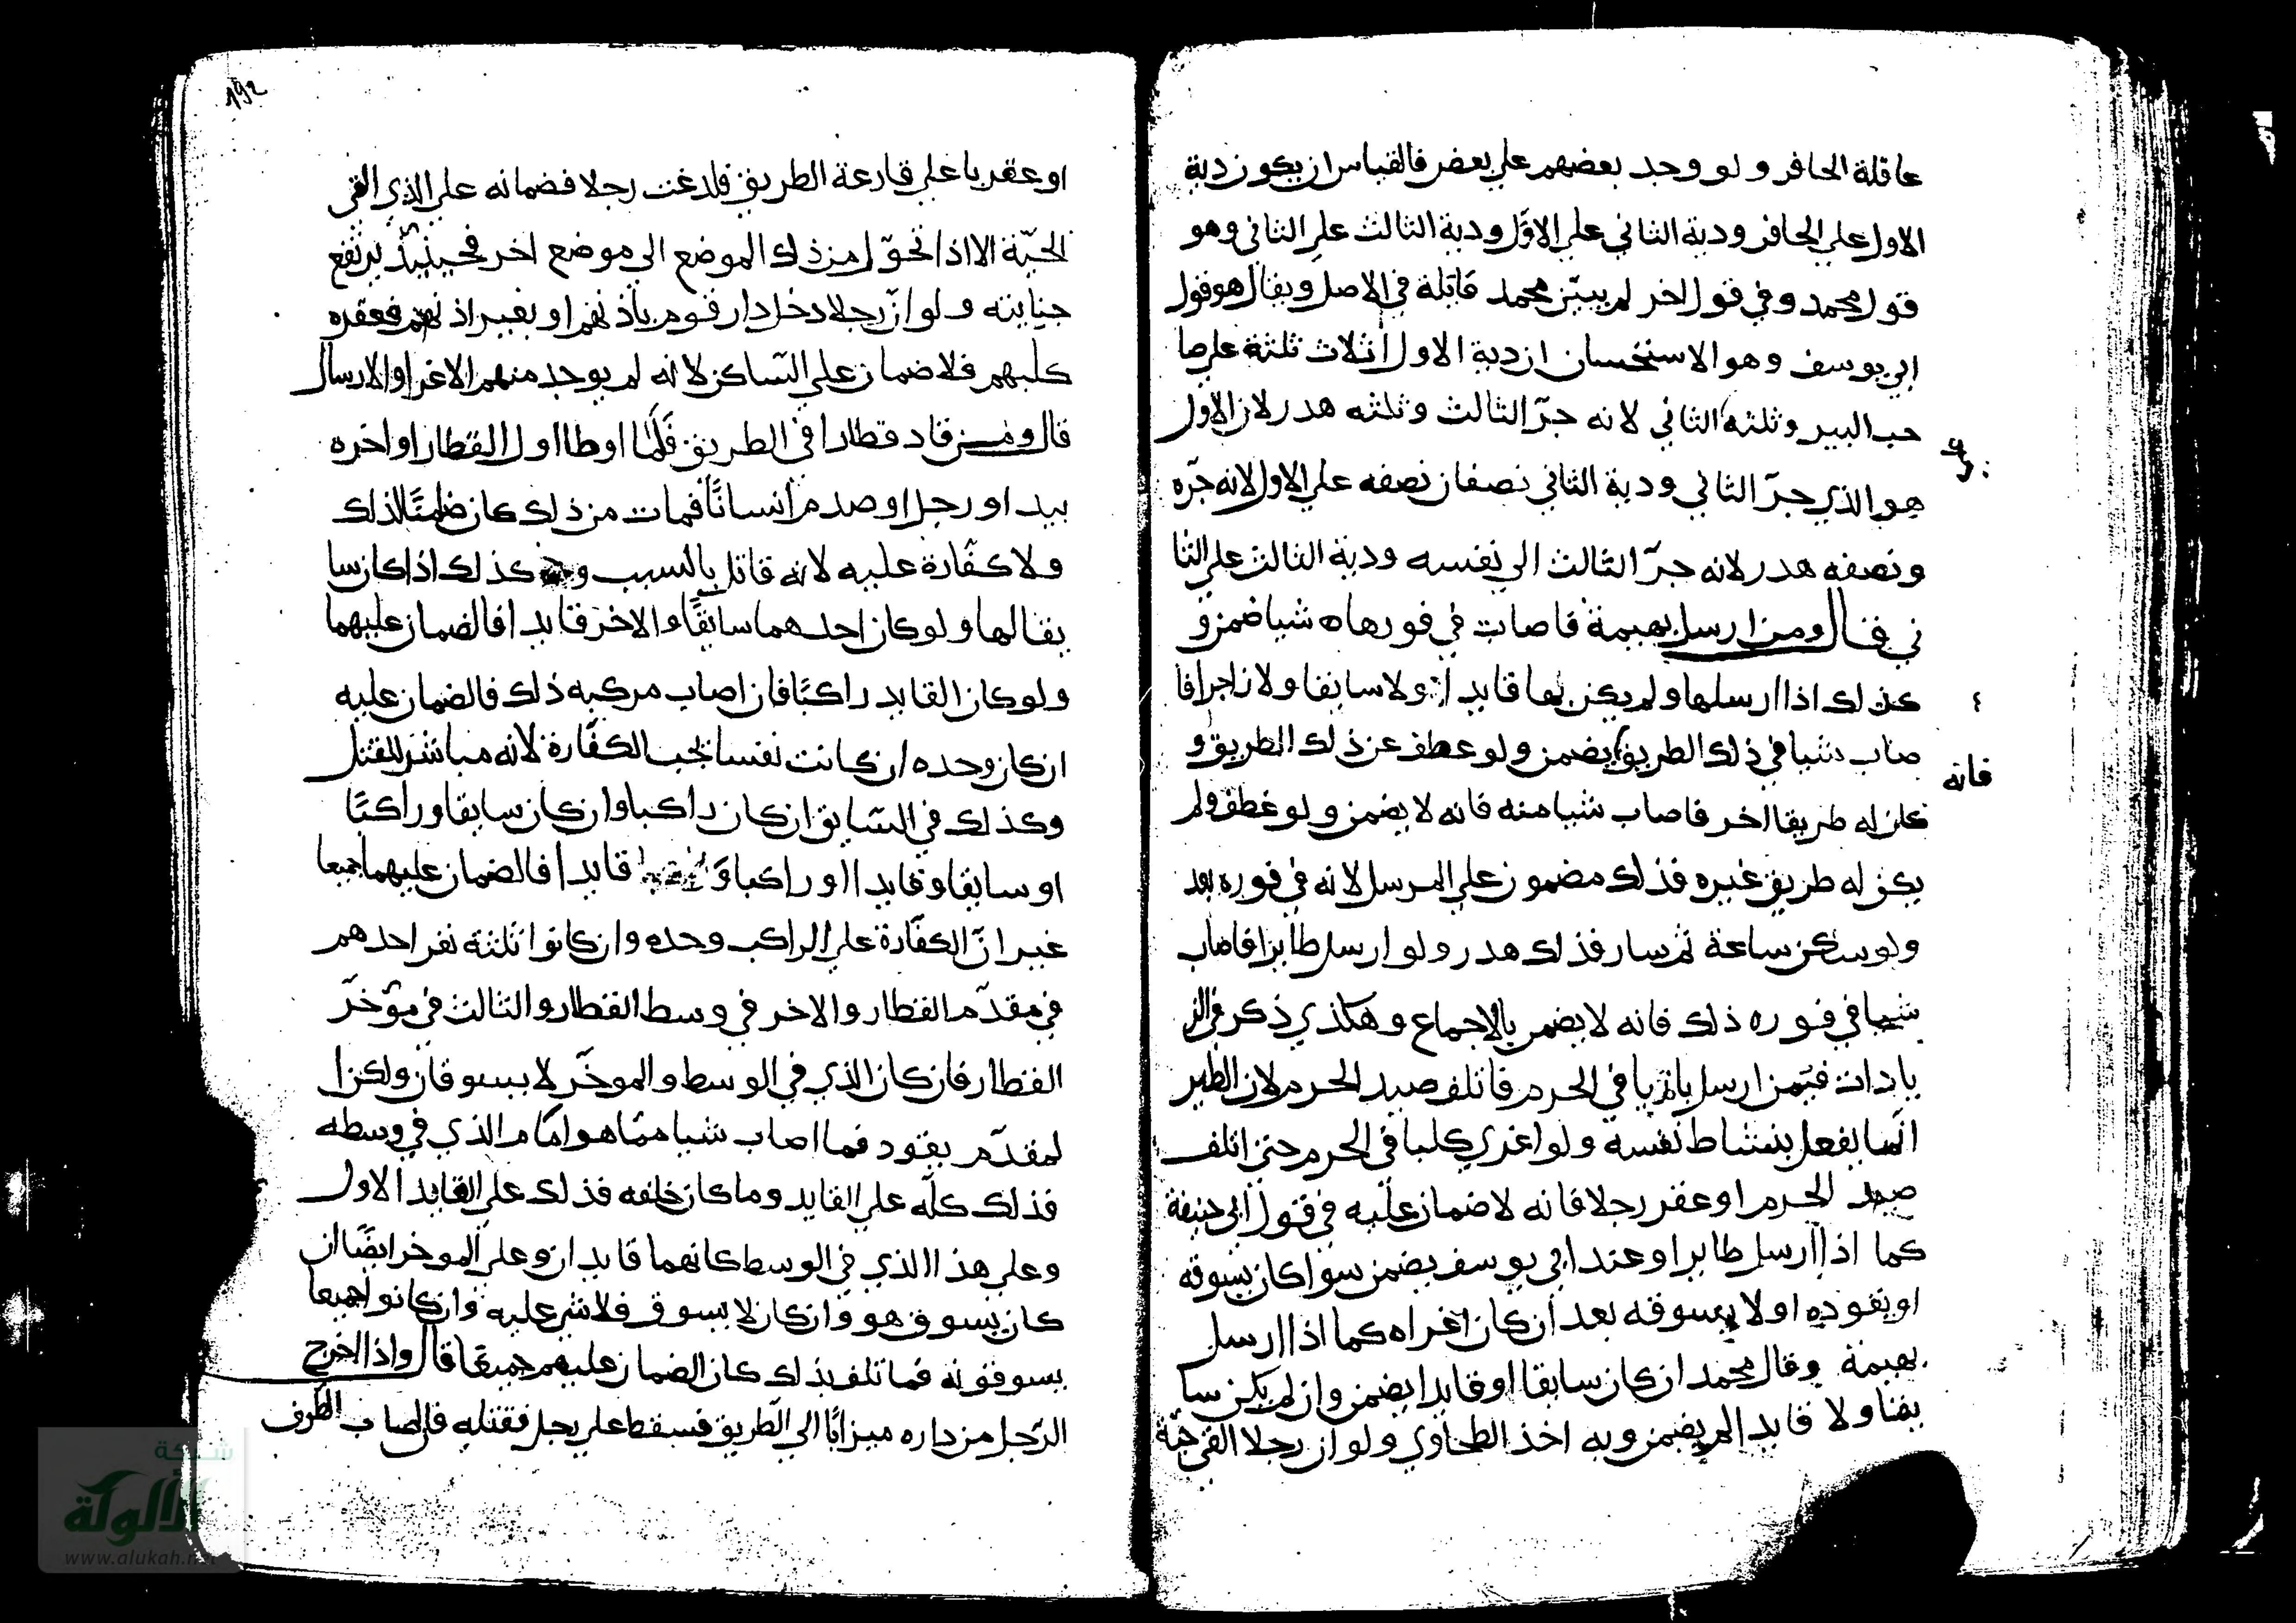 عاقلة الحافر ولو وجد بعضهم علي بعض فالقياس ان يكون دية
الاول علي الحافر ودية الثاني علي الاوّل ودية الثالث علي الثاني وهو
قول محمد وفي قول اخر لم يبيّن محمد قائله في الاصل ويقال هو قول
ابي يوسف وهو الاستحسان ان دية الاول اثلاث ثلثه علي صا
حب البير وثلثه الثاني لانه جرّ الثالث وثلثه هدر لان الاول
هو الذي جرّ الثاني ودية الثاني نصفان نصفه علي الاول لانه جرّه
ونصفه هدر لانه جرّ الثالث الي نفسه ودية الثالث علي الثا
ني قال ومن ارسل بهيمة فاصات في فورها شيا ضمن و
كذلك اذا ارسلها ولم يكن لها قايدا ولا سايقا ولا زاجرا فا
صاب شيا في ذلك الطريق يضمن ولو عطف عن ذلك الطريق و
فانه
كان له طريقا اخر فاصاب شيا منه فانه لا يضمن ولو عطف ولم
يكن له طريق غيره فذلك مضمون علي المرسل لانه في فوره بعد
ولو سكن ساعة ثم سار فذلك هدر ولو ارسل طايرا فاصاب
شيا في فوره ذلك فانه لا يضمن بالاجماع وهكذي ذكر في الز
يادات فيمن ارسل بازيا في الحرم فاتلف صيد الحرم لان الطير
انما يفعل بنشاط نفسه ولو اغري كلبا في الحرم حتي اتلف
صيد الحرم او عقر رجلا فانه لا ضمان عليه في قول ابي حنيفة
كما اذا ارسل طايرا وعند ابي يوسف يضمن سوا كان يسوقه
او يقوده او لا يسوقه بعد ان كان اغراه كما اذا ارسل
بهيمة وقال محمد ان كان سايقا او قايدا يضمن وان لم يكن سا
يقا ولا قايدا لم يضمن وبه اخذ الطحاوي ولو ان رجلا القي حيّة
192
او عقربا علي قارعة الطريق فلدغت رجلا فضمانه علي الذي القي
الحيّة الا اذا تحوّل من ذلك الموضع الي موضع اخر فحينيذ يرتفع
جنايته ولو انّ رجلا دخل دار قوم باذنهم او بغير اذنهم فعقره
كلبهم فلا ضمان علي السّاكن لانه لم يوجد منهم الاغرا والارسال
قال ومن قاد قطارا في الطريق فلما اوطا اول القطار او اخره
بيد او رجل او صدم انسانًا فمات من ذلك كان ضامنًا لذلك
ولا كفّارة عليه لانه قاتل بالسبب وكذلك اذا كان سا
يقا لها ولو كان احدهما سايقًا والاخر قايدا فالضمان عليهما
ولو كان القايد راكبًا فان اصاب مركبه ذلك فالضمان عليه
ان كان وحده ان كانت نفسا يجب الكفّارة لانه مباشر للقتل
وكذلك في السّايق ان كان راكبا وان كان سايقا وراكبًا
او سايقا وقايدا او راكبا و قايدا فالضمان عليهما جميعا
غير انّ الكفّارة علي الراكب وحده وان كانوا ثلثة نفر احدهم
في مقدّم القطار والاخر في وسط القطار والثالث في مؤخّر
القطار فان كان الذي في الوسط والموخّر لا يسوقان ولكن ا
لمقدّم يقود فما اصاب شيا ممّا هو امام الذي في وسطه
فذلك كلّه علي القايد وما كان خلفه فذلك علي القايد الاول
وعلي هذا الذي في الوسط كانهما قايدان وعلي الموخر ايضًا ان
كان يسوق هو وان كان لا يسوق فلا شي عليه وان كانوا جميعا
يسوقونه فما تلف بذلك كان الضمان عليهم جميعًا قال واذا اخرج
الرّجل من داره ميزابًا الي الطّريق فسقط علي رجل فقتله فان اصاب الطرف
شبكة
الألوكة
www.alukah.net